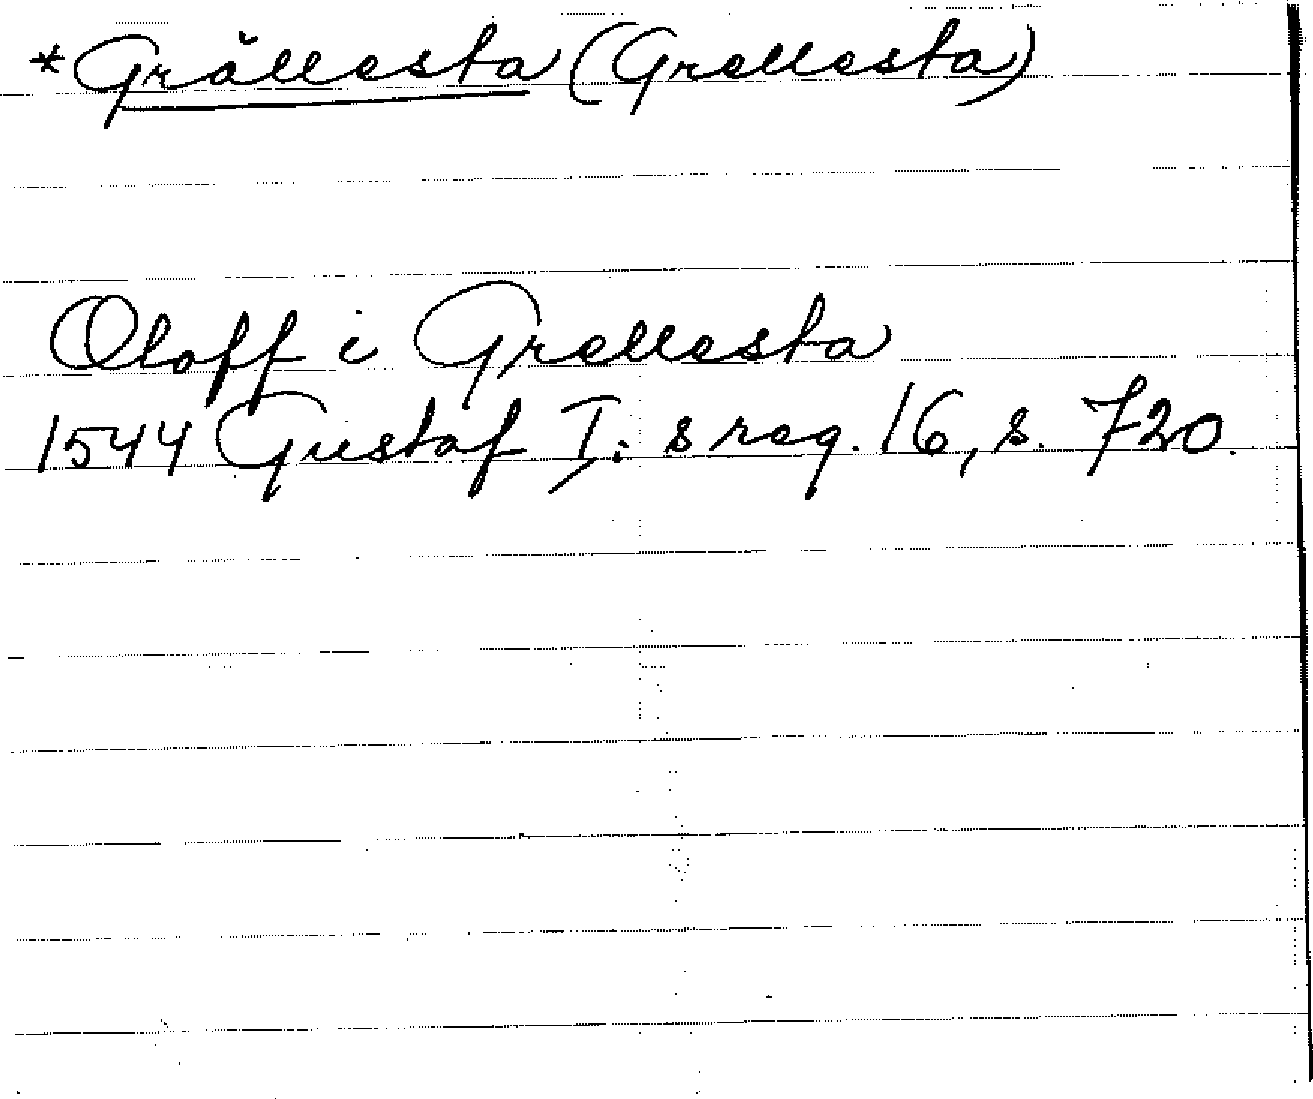 *Grällesta (Grellesta)
Oloff i Grellesta
1544 Gustaf I:s reg. 16, s. 720.